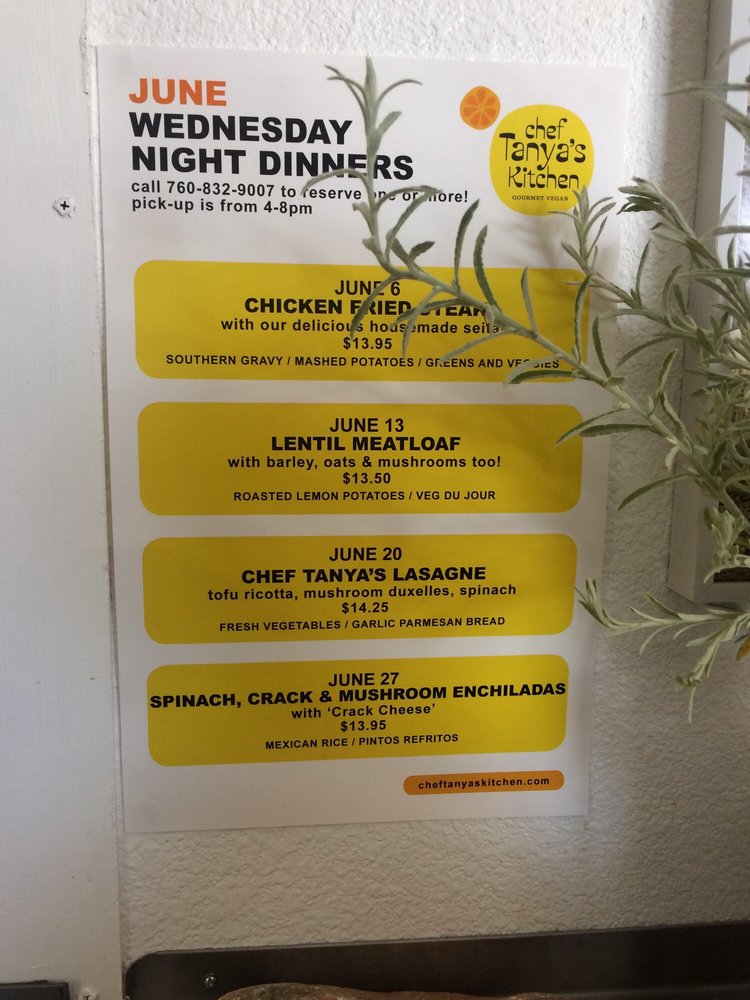 JUNE
WEDNESDAY
NIGHT DINNERS
call 760-832-9007 to reserve one or more!
pick-up is from 4-8pm
chef
Tanya's
Kitchen
GOURMET VEGAN
JUNE 6
CHICKEN FRIED STEAK
with our delicious housemade seitan
$13.95
SOUTHERN GRAVY / MASHED POTATOES / GREENS AND VEGGIES
JUNE 13
LENTIL MEATLOAF
with barley, oats & mushrooms too!
$13.50
ROASTED LEMON POTATOES / VEG DU JOUR
JUNE 20
CHEF TANYA'S LASAGNE
tofu ricotta, mushroom duxelles, spinach
$14.25
FRESH VEGETABLES / GARLIC PARMESAN BREAD
JUNE 27
SPINACH, CRACK & MUSHROOM ENCHILADAS
with 'Crack Cheese'
$13.95
MEXICAN RICE / PINTOS REFRITOS
cheftanyaskitchen.com